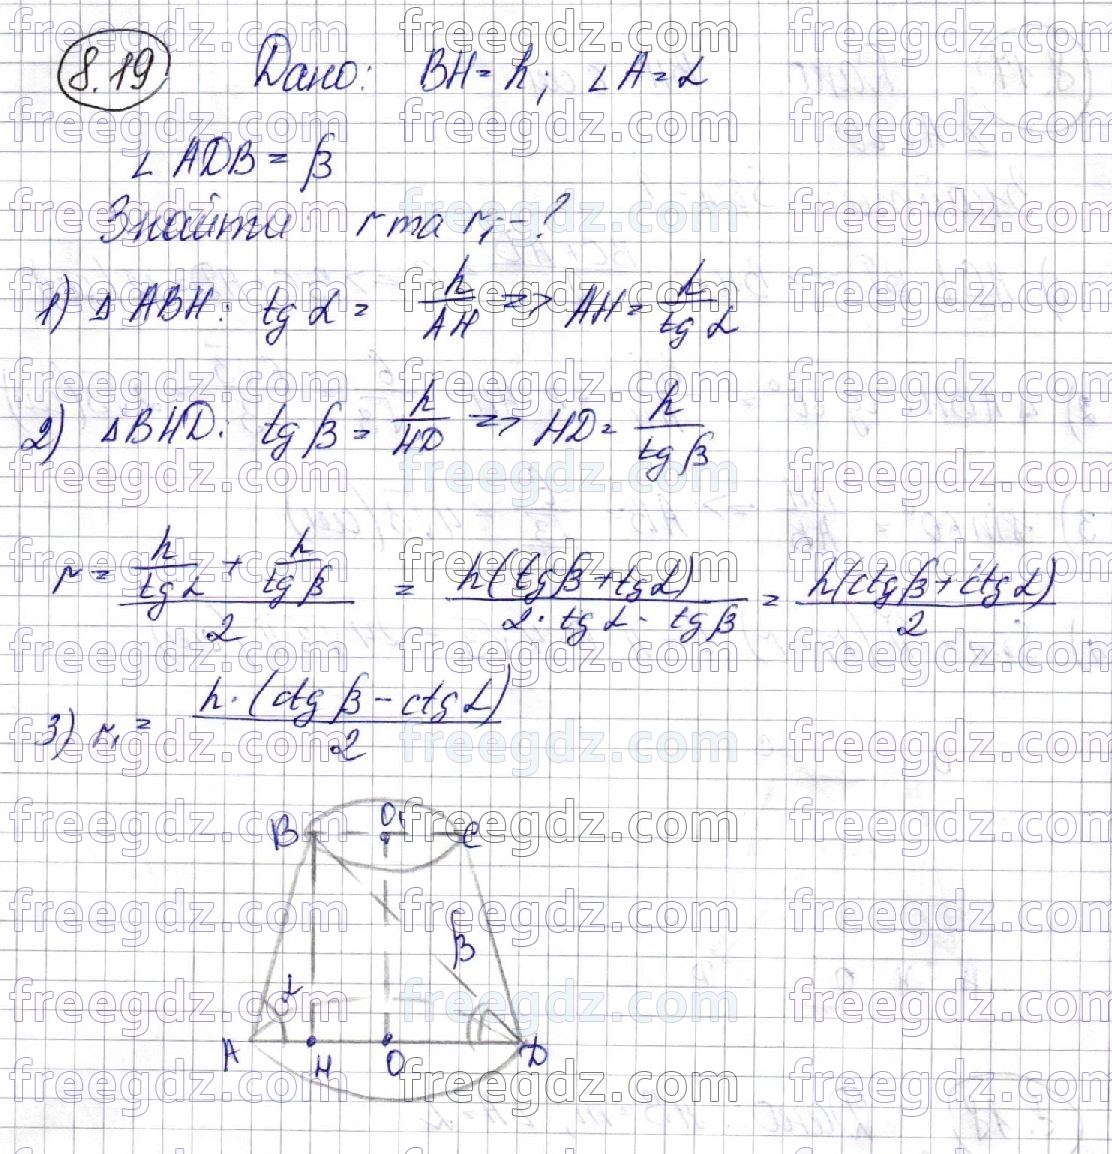 8.19 Дано: BH = h; ∠A = α
∠ADB = β
Знайти r та r₁ - ?
1) △ABH: tg α = h/AH => AH = h/tg α
2) △BHD: tg β = h/HD => HD = h/tg β
r = (h/tg α + h/tg β)/2 = h(tg β + tg α)/(2 · tg α · tg β) = h(ctg β + ctg α)/2
3) r₁ = h · (ctg β - ctg α)/2
B O₁ C
β
α
A H O D
freegdz.com